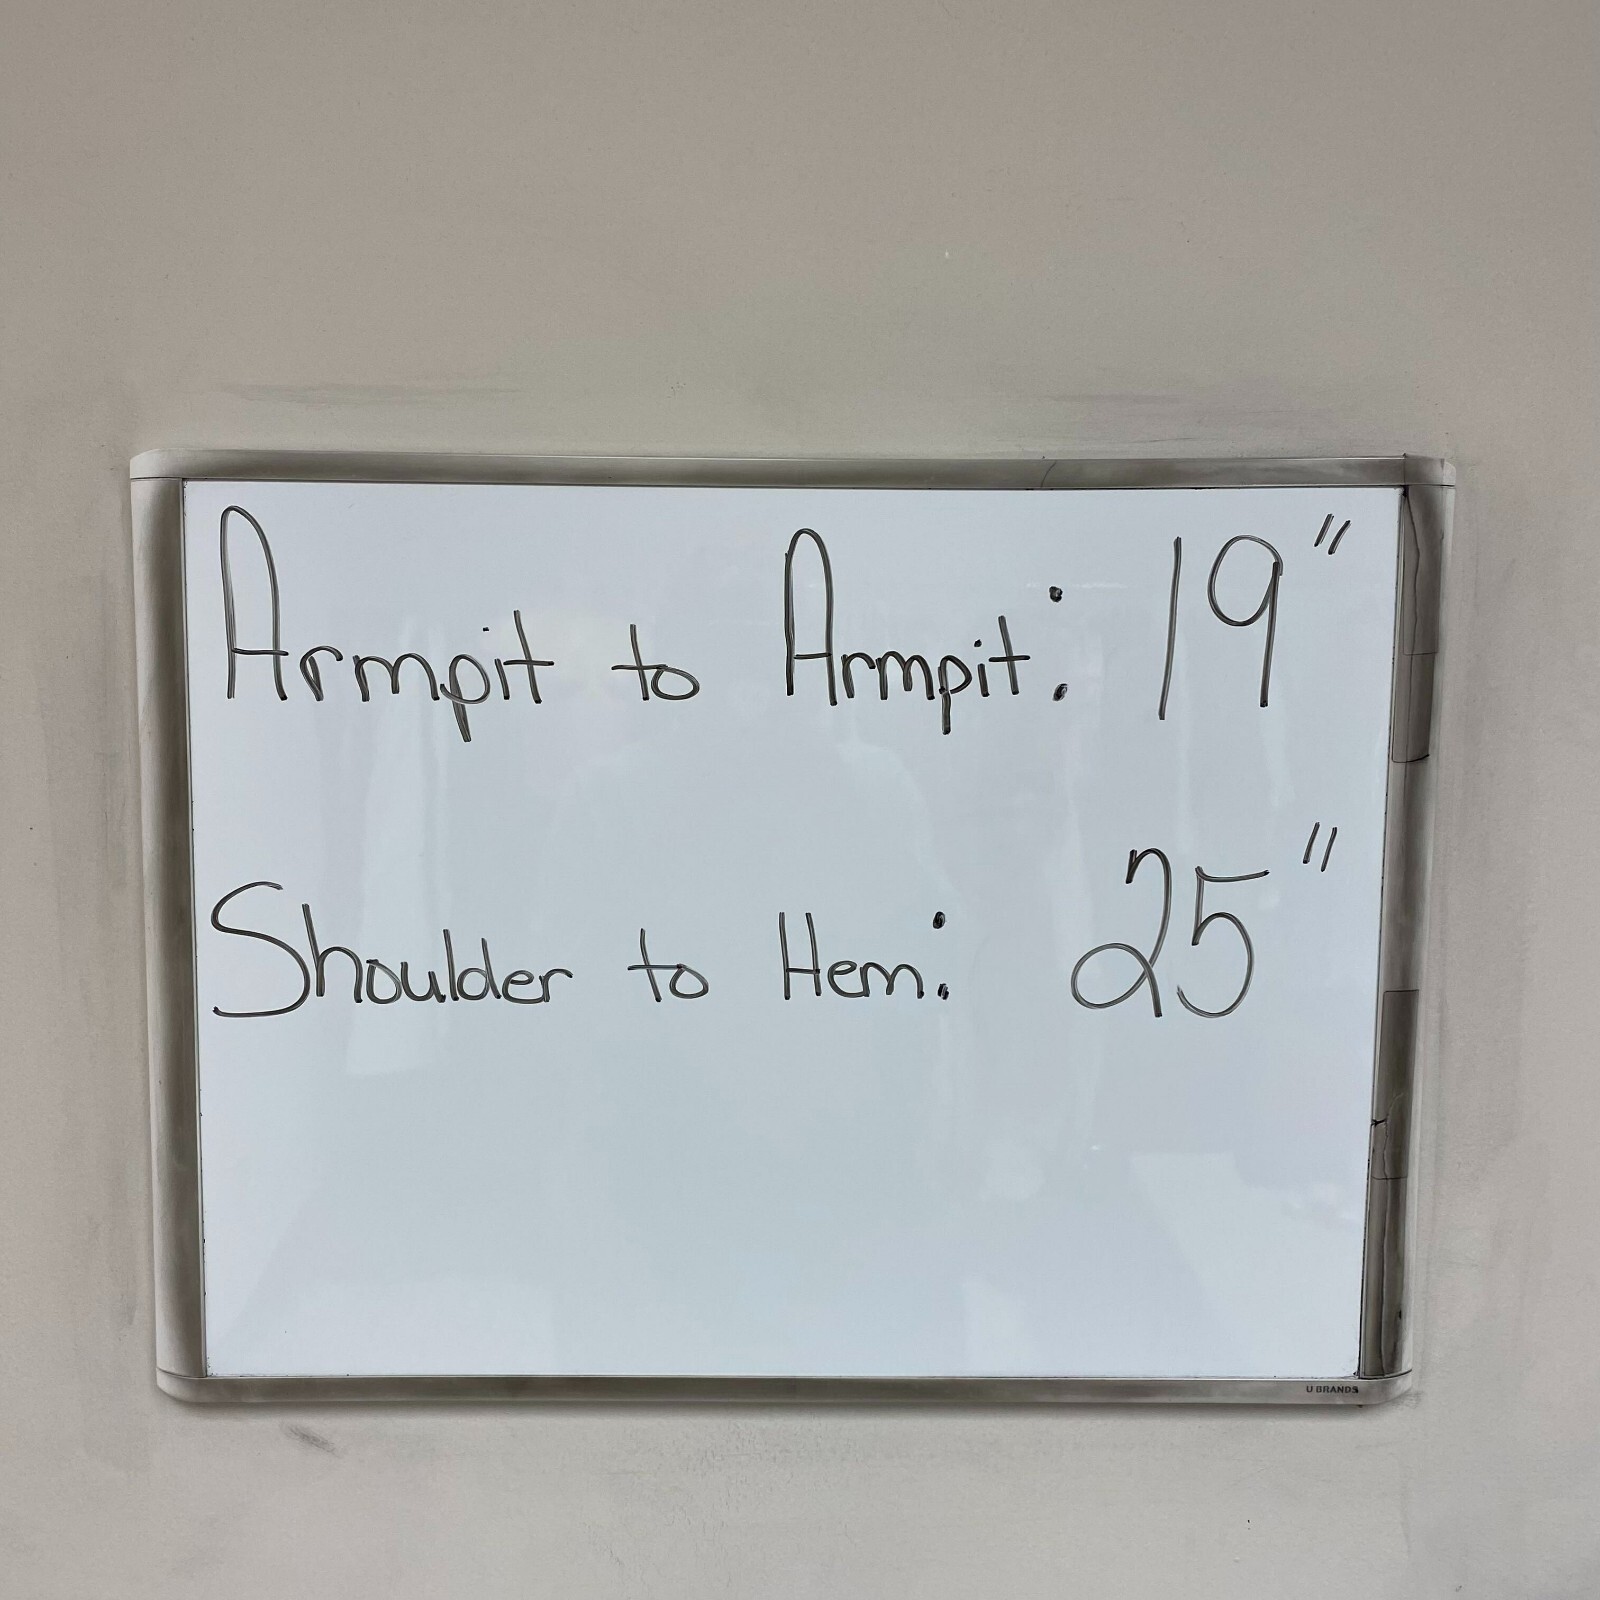 Armpit to Armpit: 19"
Shoulder to Hem: 25"
U BRANDS